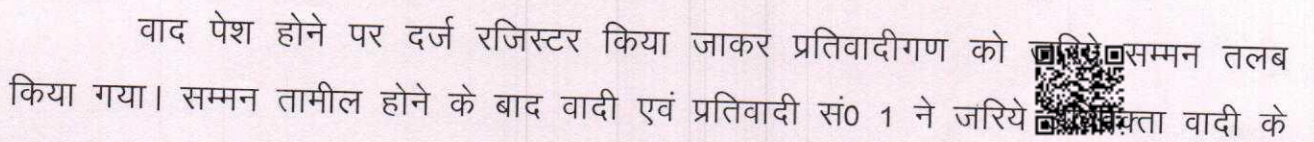 वाद पेश होने पर दर्ज रजिस्टर किया जाकर प्रतिवादीगण को सम्मन तलब
किया गया। सम्मन तामील होने के बाद वादी एवं प्रतिवादी सं0 1 ने जरिये वादी के